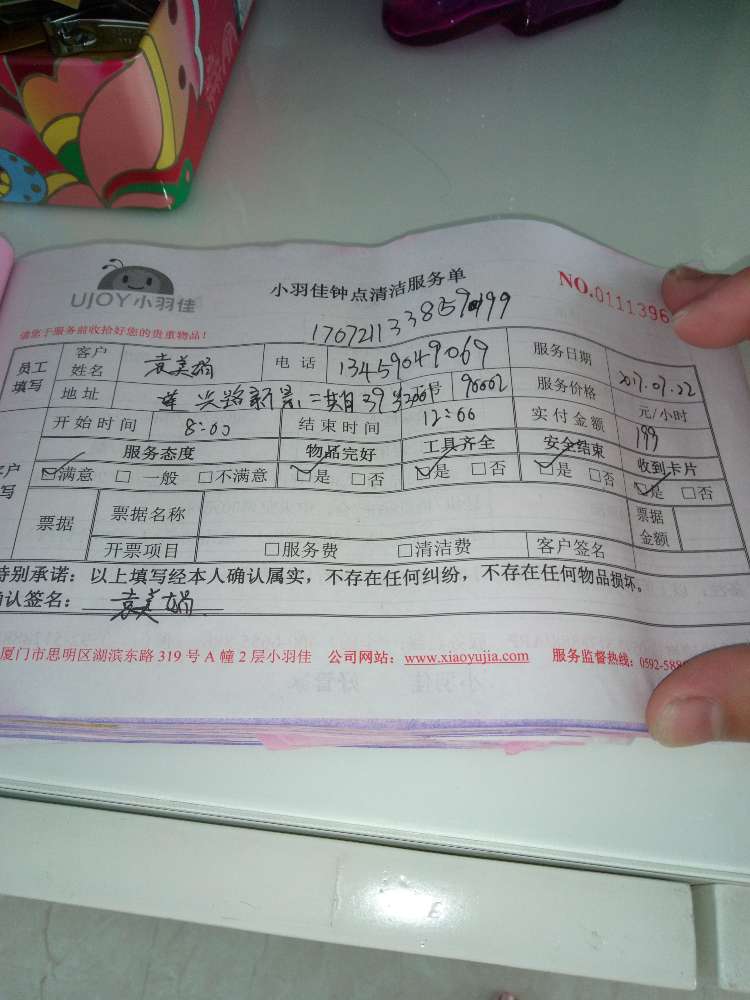 UJOY小羽佳
小羽佳钟点清洁服务单
NO.0111396
请您于服务前收拾好您的贵重物品!
员工填写 客户姓名 袁美娟 电 话 13459049069 服务日期 2017.07.22
地 址 兴路新景二期39 号 90002 服务价格 元/小时
开始时间 8:00 结束时间 12:00 实付金额 199
服务态度 物品完好 工具齐全 安全结束 收到卡片
☑满意 □ 一般 □不满意 ☑是 □否 ☑是 □否 ☑是 □否 ☑是 □否
票据 票据名称 票据金额
开票项目 □服务费 □清洁费 客户签名
特别承诺:以上填写经本人确认属实,不存在任何纠纷,不存在任何物品损坏。
确认签名: 袁美娟
厦门市思明区湖滨东路 319 号 A 幢 2 层小羽佳 公司网站:www.xiaoyujia.com 服务监督热线:0592-588